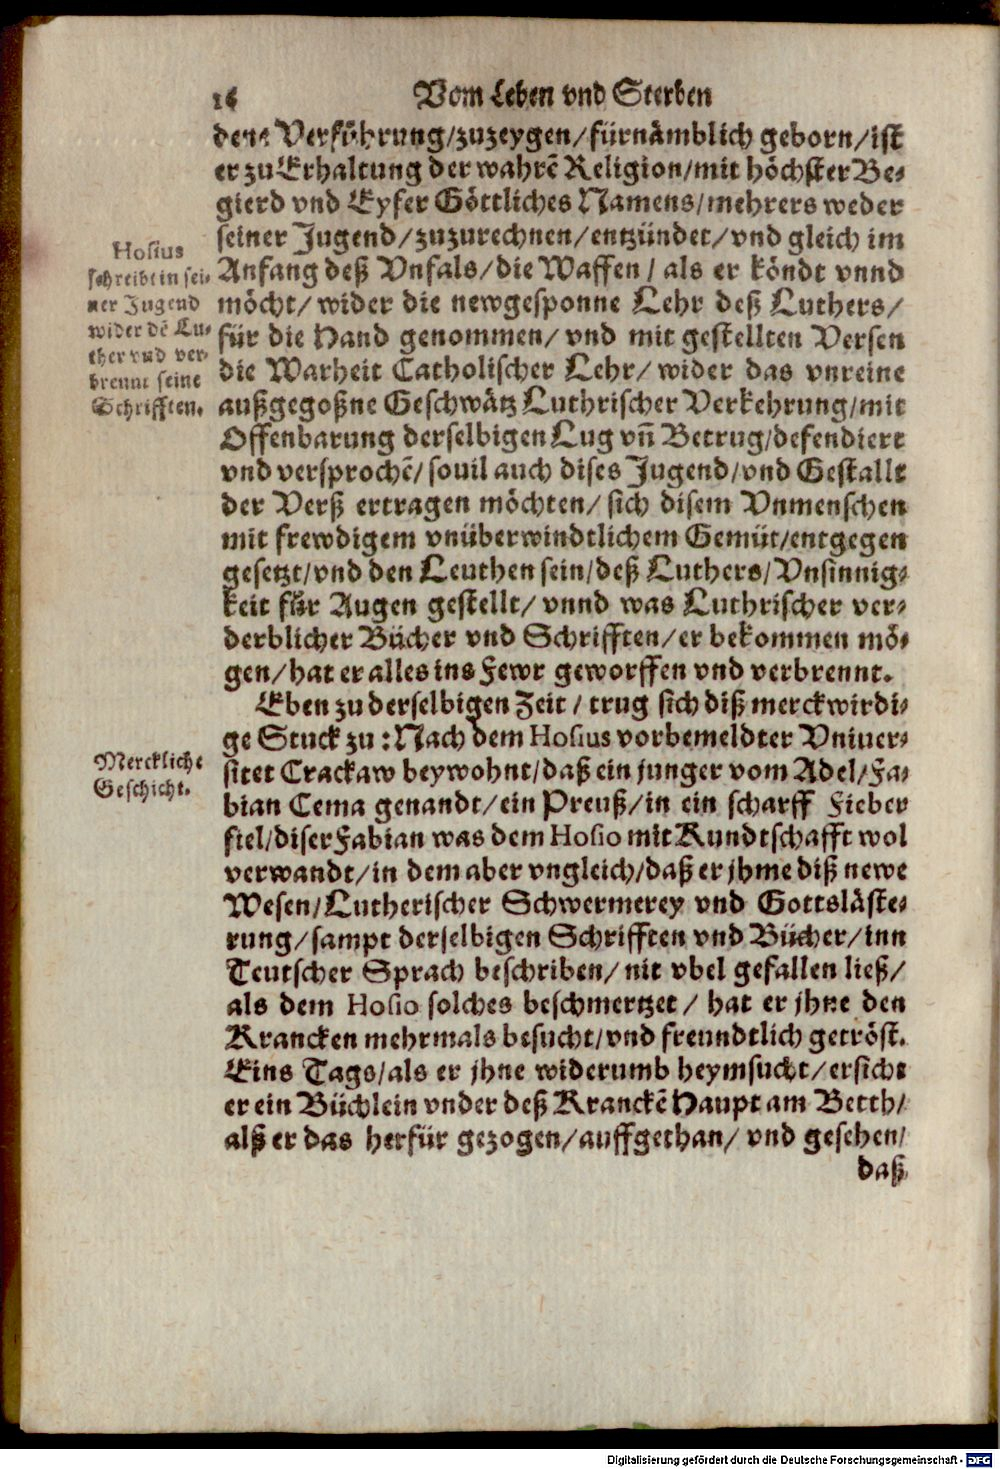 16 Vom Leben vnd Sterben
dere Verföhrung/zuzeygen/fürnämblich geborn/ist
er zu Erhaltung der wahrẽ Religion/mit höchster Be-
gierd vnd Eyfer Göttliches Namens/mehrers weder
seiner Jugend/zuzurechnen/entzündet/vnd gleich im
Anfang deß Vnfals/die Waffen/ als er köndt vnnd
möcht/ wider die newgesponne Lehr deß Luthers/
für die Hand genommen/ vnd mit gestellten Versen
die Warheit Catholischer Lehr/ wider das vnreine
außgegoßne Geschwätz Luthrischer Verkehrung/mit
Offenbarung derselbigen Lug vñ Betrug/defendiert
vnd versprochẽ/ souil auch dises Jugend/vnd Gestallt
der Verß ertragen möchten/ sich disem Vnmenschen
mit frewdigem vnüberwindtlichem Gemüt/entgegen
gesetzt/vnd den Leuthen sein/deß Luthers/Vnsinnig-
keit für Augen gestellt/ vnnd was Luthrischer ver-
derblicher Bücher vnd Schrifften/er bekommen mö-
gen/hat er alles ins Fewr geworffen vnd verbrennt.
Hosius
schreibt in sei-
ner Jugend
wider dẽ Lu-
ther vnd ver-
brennt seine
Schrifften.
Eben zu derselbigen Zeit/ trug sich diß merckwirdi-
ge Stuck zu: Nach dem Hosius vorbemeldter Vniuer-
sitet Crackaw beywohnt/daß ein junger vom Adel/Fa-
bian Cema genandt/ein Preuß/in ein scharff Fieber
fiel/diser Fabian was dem Hosio mit Kundtschafft wol
verwandt/in dem aber vngleich/daß er jhme diß newe
Wesen/Lutherischer Schwermerey vnd Gottsläste-
rung/sampt derselbigen Schrifften vnd Bücher/inn
Teutscher Sprach beschriben/nit vbel gefallen ließ/
als dem Hosio solches beschmertzet/ hat er jhne den
Krancken mehrmals besucht/vnd freundtlich getröst.
Eins Tags/als er jhne widerumb heymsucht/ersicht
er ein Büchlein vnder deß Kranckẽ Haupt am Betth/
alß er das herfür gezogen/auffgethan/ vnd gesehen/
Merckliche
Geschicht.
daß
Digitalisierung gefördert durch die Deutsche Forschungsgemeinschaft - DFG